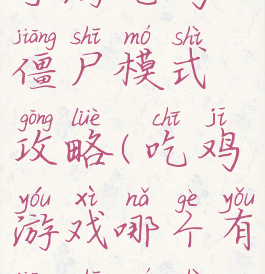 jiāng shī mó shì
僵尸模式
gōng lüè chī jī
攻略(吃鸡
yóu xì nǎ gè yǒu
游戏哪个有